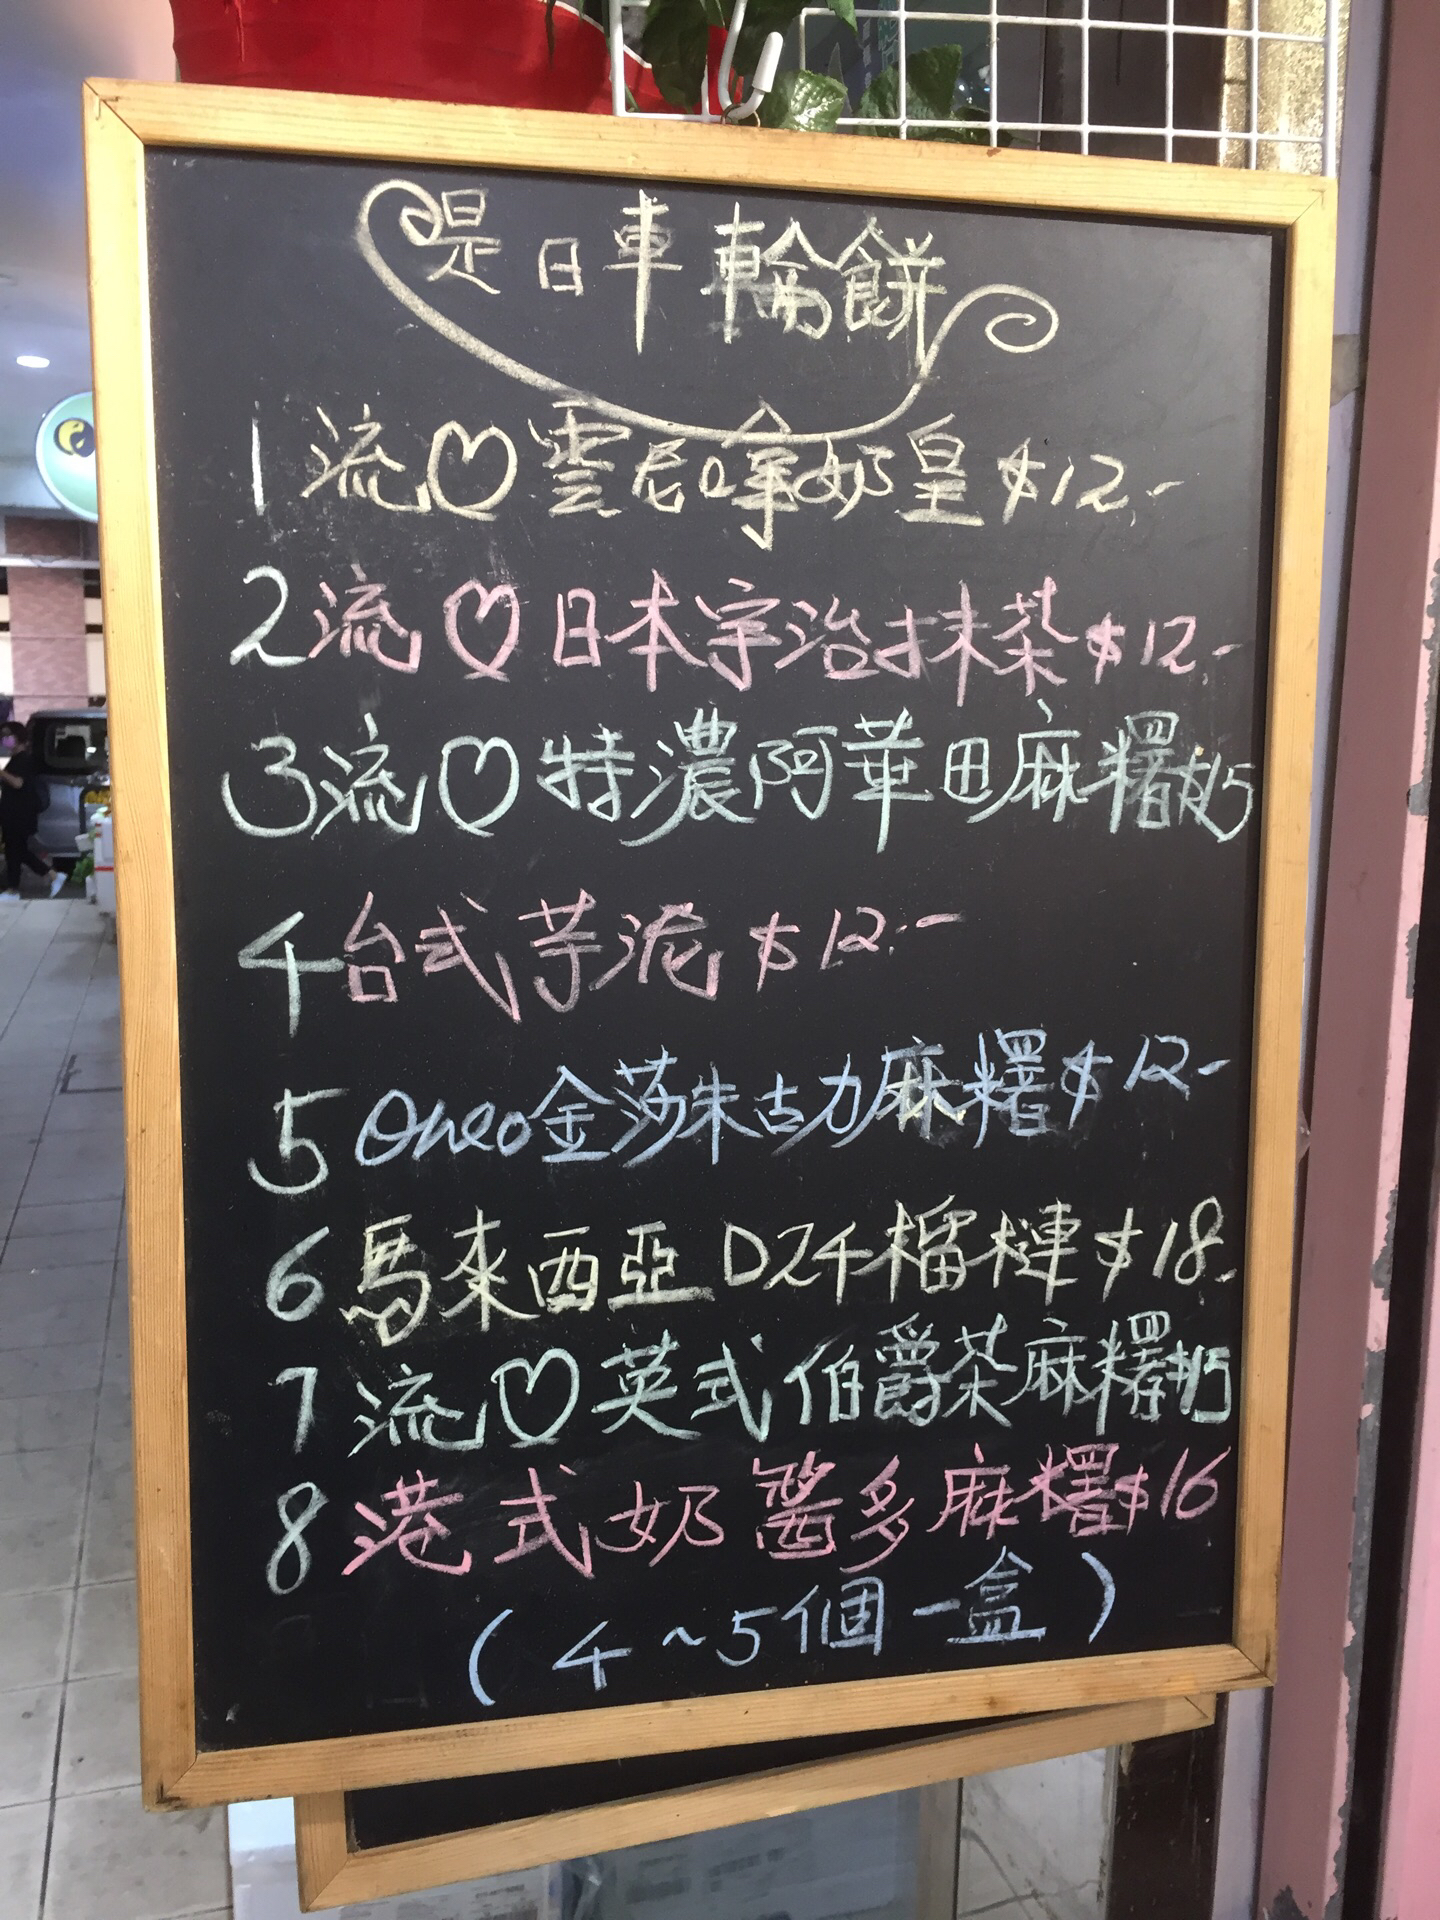 是日車輪餅
1 流♡雲尼嗱奶皇 $12.-
2 流♡日本宇治抹茶 $12.-
3 流♡特濃阿華田麻糬 $15
4 台式芋泥 $12.-
5 Oreo金莎朱古力麻糬 $12-
6 馬來西亞 D24榴槤 $18.-
7 流♡英式伯爵茶麻糬 $15
8 港式奶醬多麻糬 $16
(4~5個一盒)